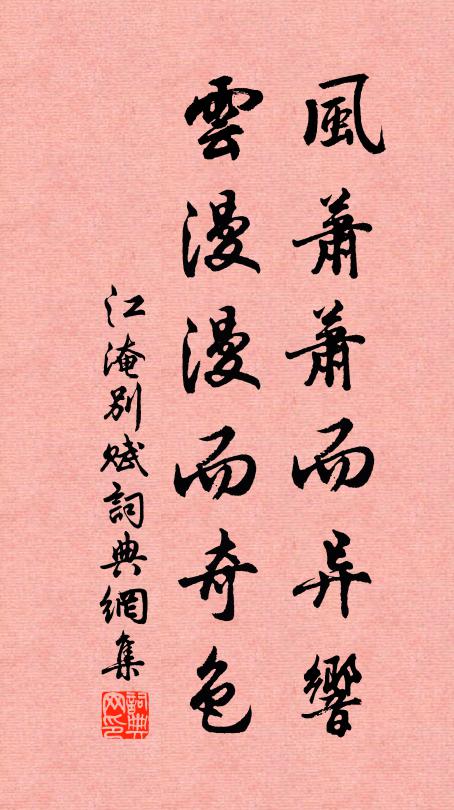 風蕭蕭而异響
雲漫漫而奇色
江淹别賦詞典網集
詞典网印